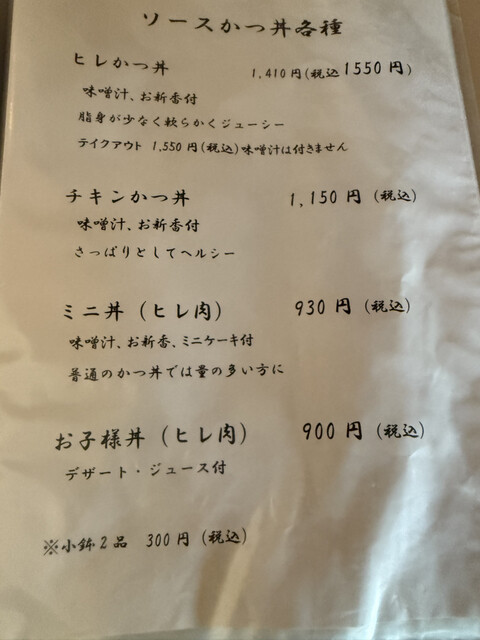 ソースかつ丼各種
ヒレかつ丼 1,410円(税込1550円)
味噌汁、お新香付
脂身が少なく軟らかくジューシー
テイクアウト 1,550円(税込)味噌汁は付きません
チキンかつ丼 1,150円(税込)
味噌汁、お新香付
さっぱりとしてヘルシー
ミニ丼(ヒレ肉) 930円(税込)
味噌汁、お新香、ミニケーキ付
普通のかつ丼では量の多い方に
お子様丼(ヒレ肉) 900円(税込)
デザート・ジュース付
※小鉢2品 300円(税込)